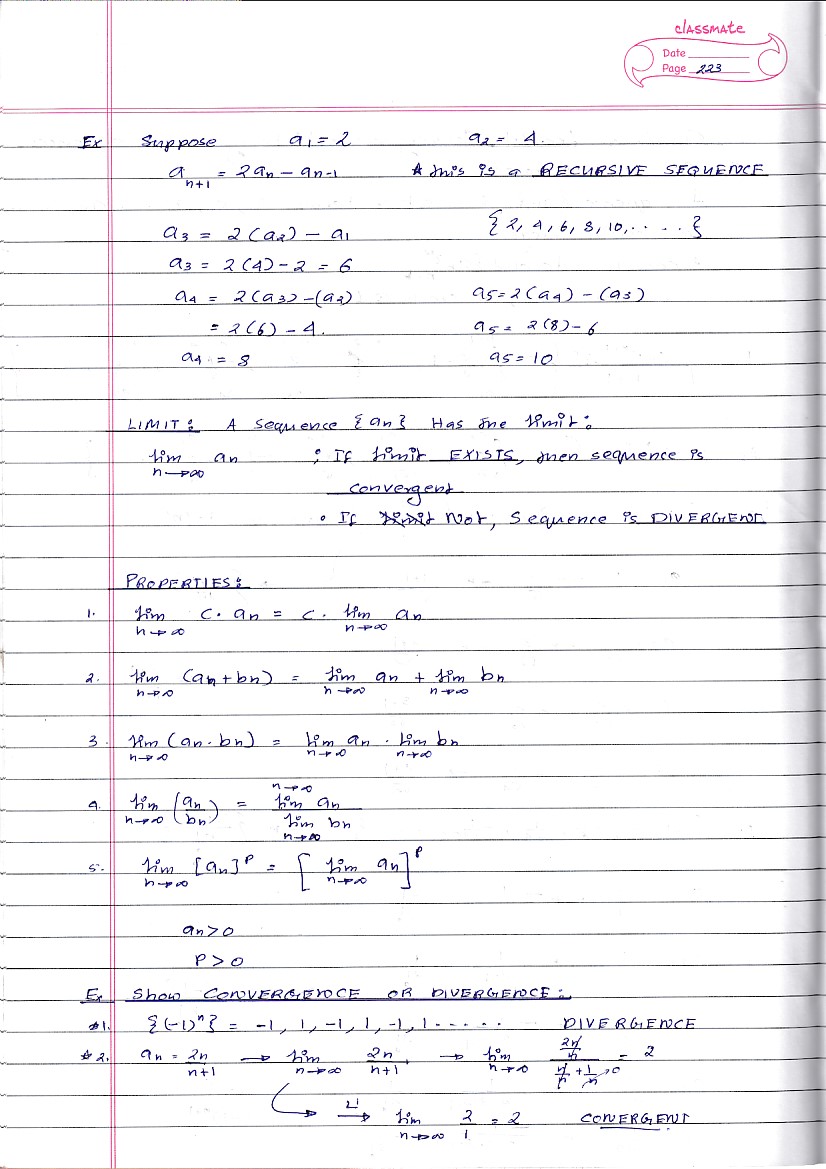 classmate
Date
Page 223
Ex Suppose a₁ = 2 a₂ = 4.
aₙ₊₁ = 2aₙ − aₙ₋₁ * This is a RECURSIVE SEQUENCE
a₃ = 2(a₂) − a₁ {2, 4, 6, 8, 10, . . . . . }
a₃ = 2(4) − 2 = 6
a₄ = 2(a₃) − (a₂) a₅ = 2(a₄) − (a₃)
= 2(6) − 4. a₅ = 2(8) − 6
a₄ = 8 a₅ = 10
LIMIT: A sequence {aₙ} Has the limit:
lim n→∞ aₙ : If limit EXISTS, then sequence is
convergent
• If limit Not, Sequence is DIVERGENT
PROPERTIES:
1. lim n→∞ c · aₙ = c · lim n→∞ aₙ
2. lim n→∞ (aₙ + bₙ) = lim n→∞ aₙ + lim n→∞ bₙ
3. lim n→∞ (aₙ · bₙ) = lim n→∞ aₙ · lim n→∞ bₙ
4. lim n→∞ (aₙ/bₙ) = lim n→∞ aₙ / lim n→∞ bₙ
5. lim n→∞ [aₙ]ᴾ = [ lim n→∞ aₙ ]ᴾ
aₙ > 0
P > 0
Ex Show CONVERGENCE OR DIVERGENCE:
#1. {(-1)ⁿ} = -1, 1, -1, 1, -1, 1 . . . . . DIVERGENCE
#2. aₙ = 2n/n+1 → lim n→∞ 2n/n+1 → lim n→∞ (2n/n)/(n/n + 1/n→0) = 2
L'→ lim n→∞ 2/1 = 2 CONVERGENT